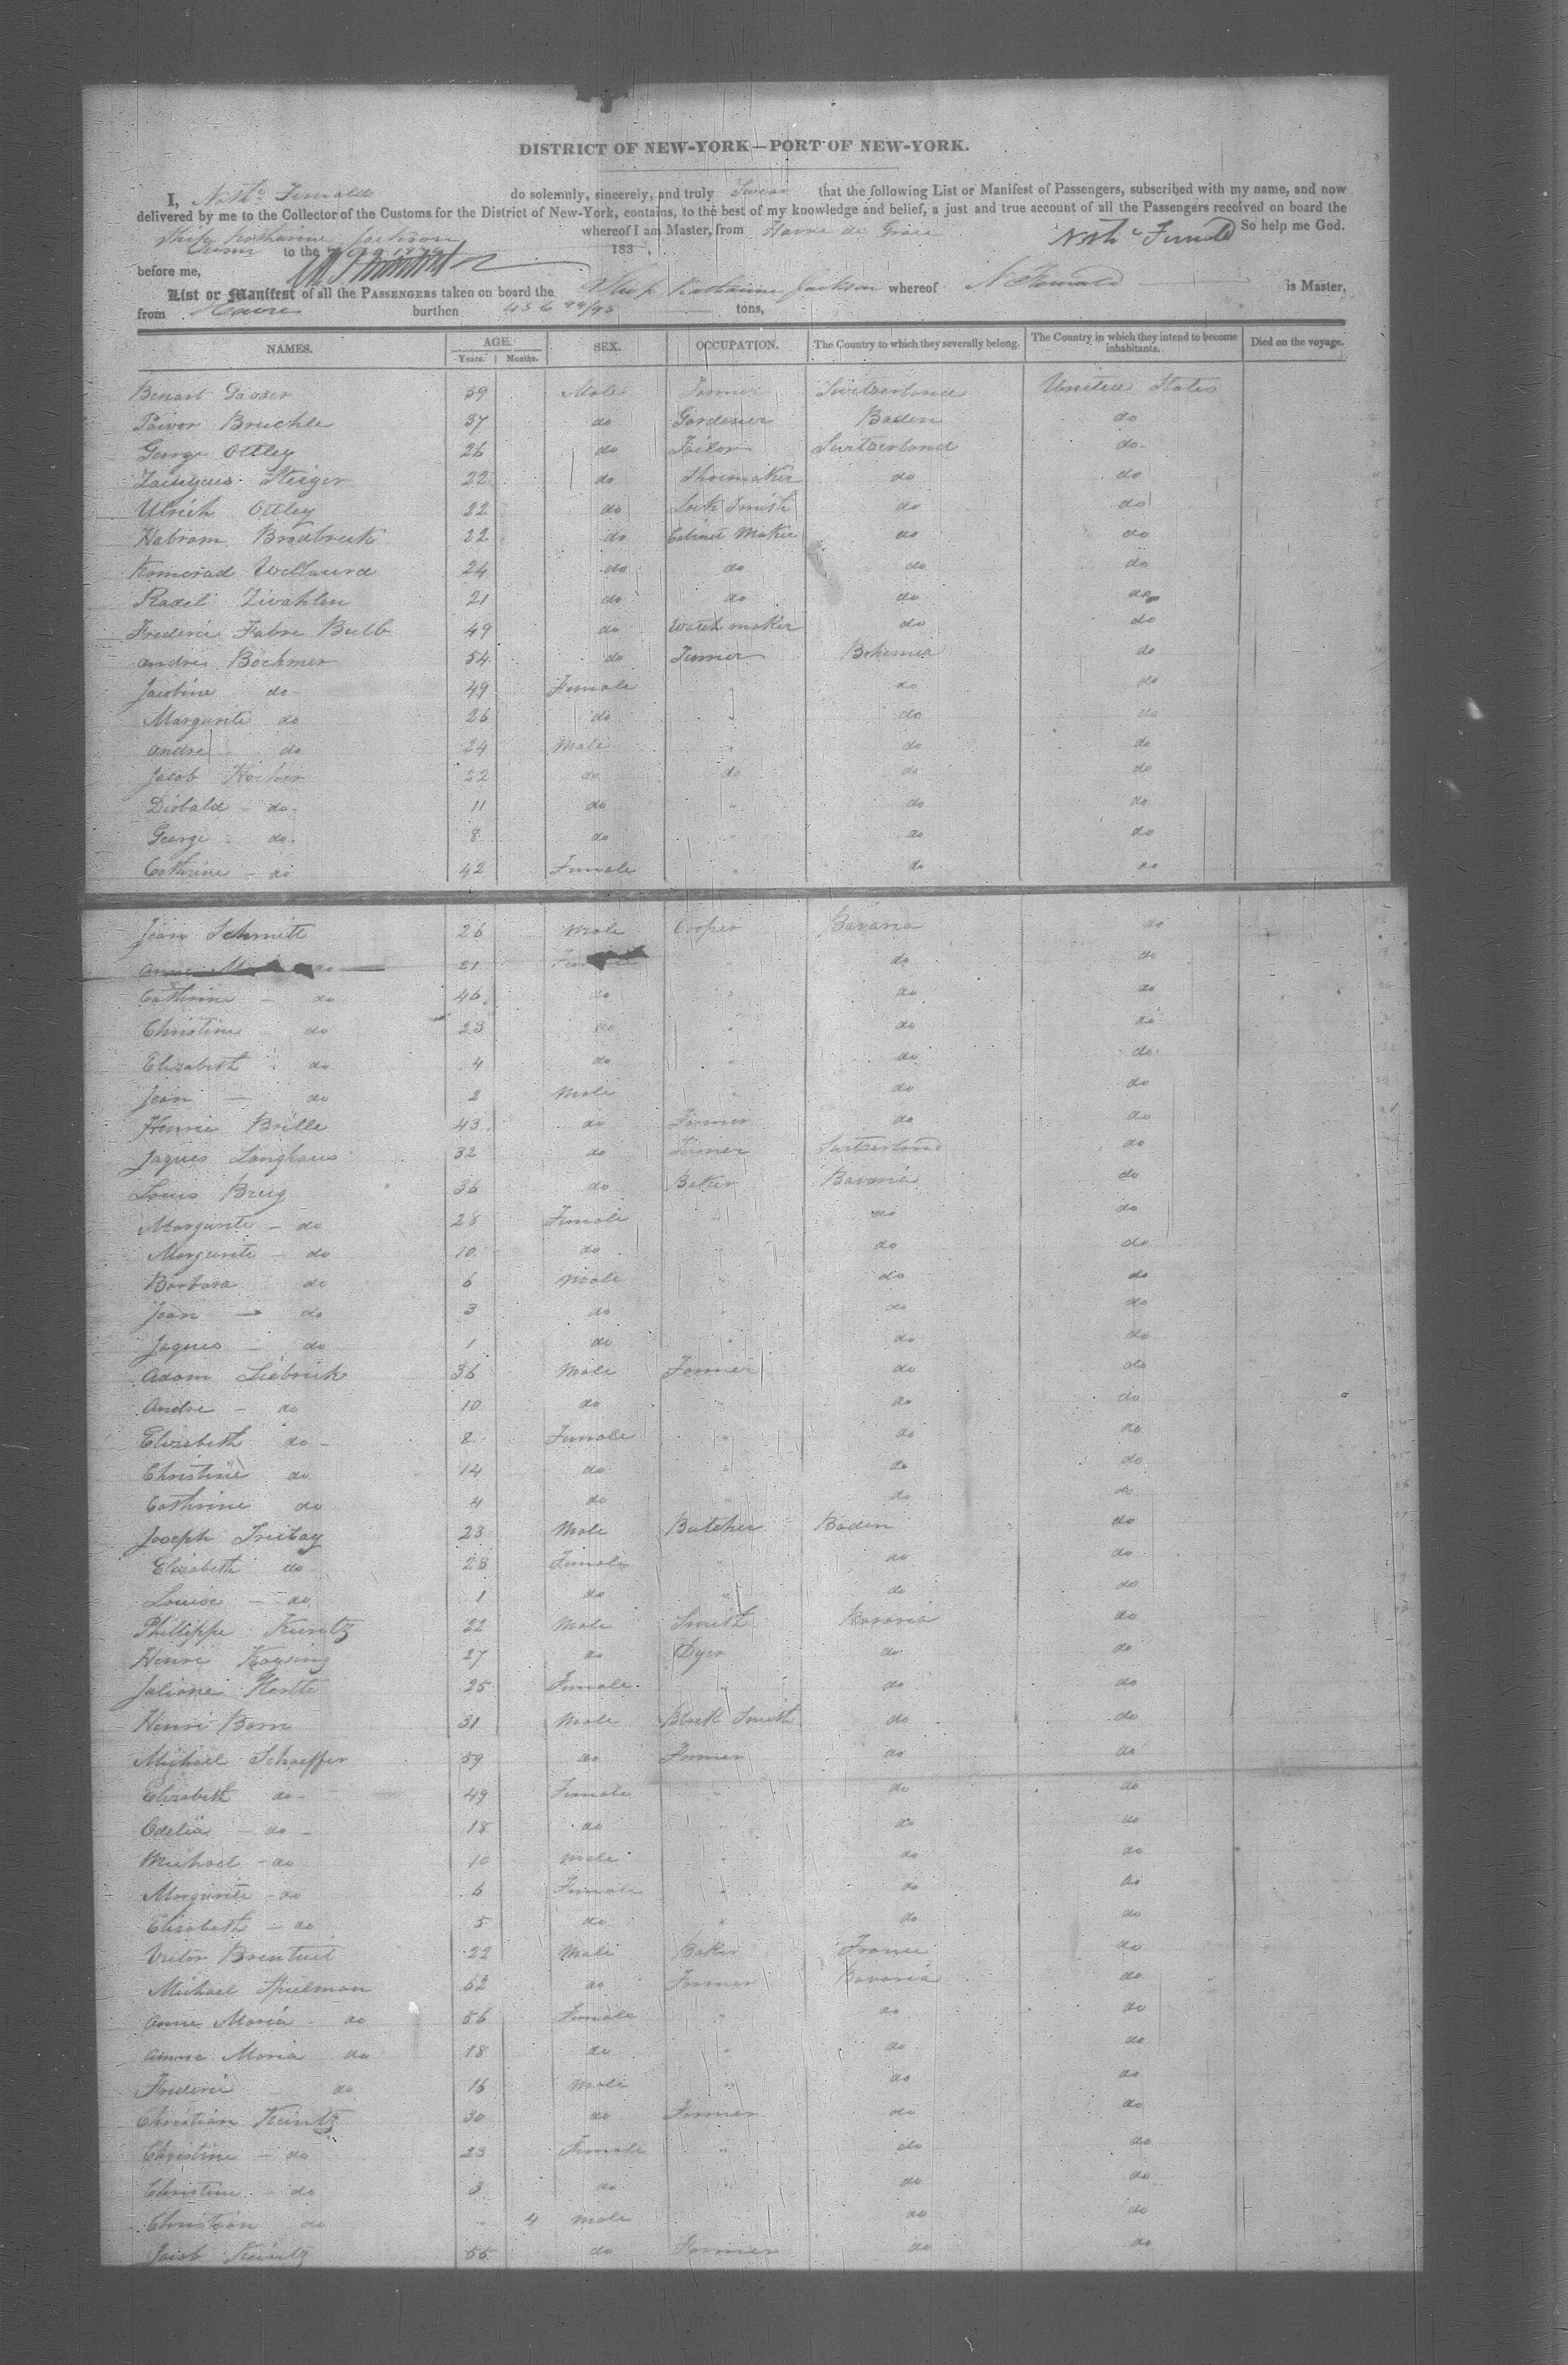 DISTRICT OF NEW-YORK—PORT OF NEW-YORK.
I, Nath. Fernald do solemnly, sincerely, and truly Swear that the following List or Manifest of Passengers, subscribed with my name, and now
delivered by me to the Collector of the Customs for the District of New-York, contains, to the best of my knowledge and belief, a just and true account of all the Passengers received on board the
Ship Katharine Jackson whereof I am Master, from Havre de Grace So help me God.
Sworn to the 183 , Nath Fernald
before me,
List or Manifest of all the PASSENGERS taken on board the Ship Katharine Jackson whereof N Fernald is Master,
from Havre burthen 456 94/95 tons,
NAMES. AGE. Years. Months. SEX. OCCUPATION. The Country to which they severally belong. The Country in which they intend to become inhabitants. Died on the voyage.
Benart Gasser 39 Male Farmer Switzerland United States
Bruchle 37 do Gardener Baden do
George Ottley 26 do Tailor Switzerland do
Steiger 22 do Shoemaker do do
Ulrich Ottley 22 do Lock Smith do do
Habram Bradbreck 22 do Cabinet Maker do do
24 do do do do
Zwahlen 21 do do do do
Frederic Fabre Bulb 49 do Watch maker do do
Andre Bochmer 54 do Farmer Bohemia do
Jacobine do 49 Female " do do
Margurite do 26 do " do do
Andre do 24 Male " do do
Jacob 22 do do do do
Diobald do 11 do " do do
George do 8 do " do do
Cathrine do 42 Female " do do
Jean Schmitt 26 Male Cooper Bavaria do
do 21 do do
Cathrine do 46 do " do do
Christine do 23 do " do do
Elizabeth do 4 do " do do
Jean do 2 Male " do do
Henrie Brille 43 do Farmer do do
Jaques Langhaus 32 do Farmer Switzerland do
Louis Breig 36 do Baker Bavaria do
Margurite do 28 Female " do do
Margurite do 10 do " do do
Barbara do 6 Male " do do
Jean do 3 do " do do
Jaques do 1 do " do do
Adam Liebrick 36 Male Farmer do do
Andre do 10 do " do do
Elizabeth do 8 Female " do do
Christine do 14 do " do do
Cathrine do 4 do " do do
Joseph Freitay 23 Male Butcher Baden do
Elizabeth do 28 Female " do do
Louise do 1 do " do do
Phillippe Kuntz 22 Male Smith Bavaria do
Henri Kaysing 27 do Dyer do do
Juliane 25 Female " do do
Henri Born 31 Male Black Smith do do
Michael Schaeffer 59 do Farmer do do
Elizabeth do 49 Female " do do
Odelia do 18 do " do do
Michael do 10 Male " do do
Margurite do 6 Female " do do
Elizabeth do 5 do " do do
Victor 22 Male Baker France do
Michael Spielman 62 do Farmer Bavaria do
Anne Maria do 56 Female " do do
Anna Maria do 18 do " do do
Frederic do 16 Male " do do
Christian Kuntz 30 do Farmer do do
Christine do 23 Female " do do
Christine do 3 do " do do
Christian do 4 Male do do
Jacob Kuntz 55 do Farmer do do